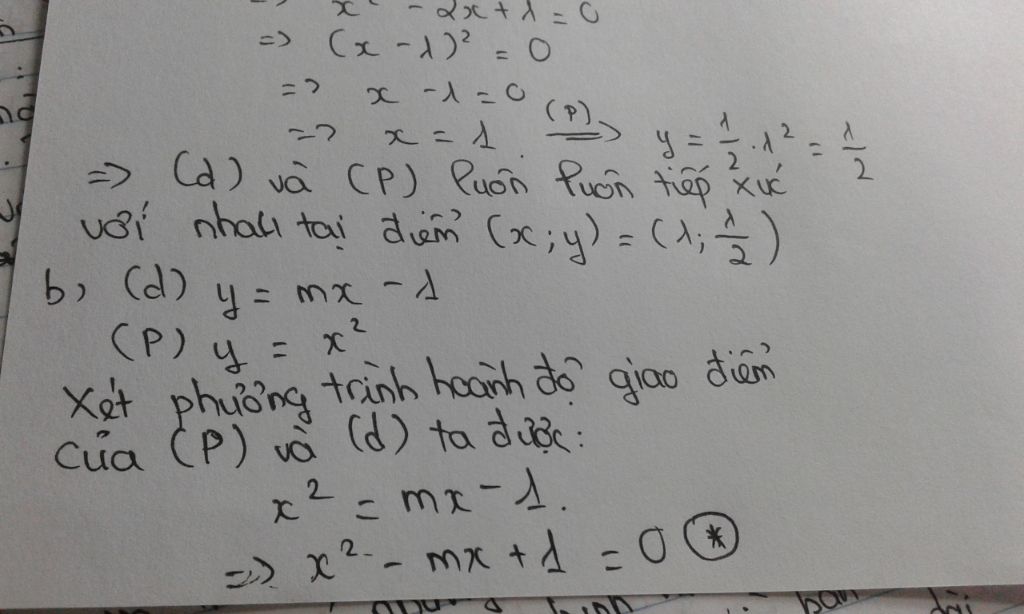 => x² - 2x + 1 = 0
=> (x - 1)² = 0
=> x - 1 = 0
=> x = 1. (P) => y = 1/2 . 1² = 1/2
=> (d) và (P) luôn luôn tiếp xúc
với nhau tại điểm (x; y) = (1; 1/2)
b, (d) y = mx - 1
(P) y = x²
Xét phương trình hoành độ giao điểm
của (P) và (d) ta được:
x² = mx - 1.
=> x² - mx + 1 = 0 (*)